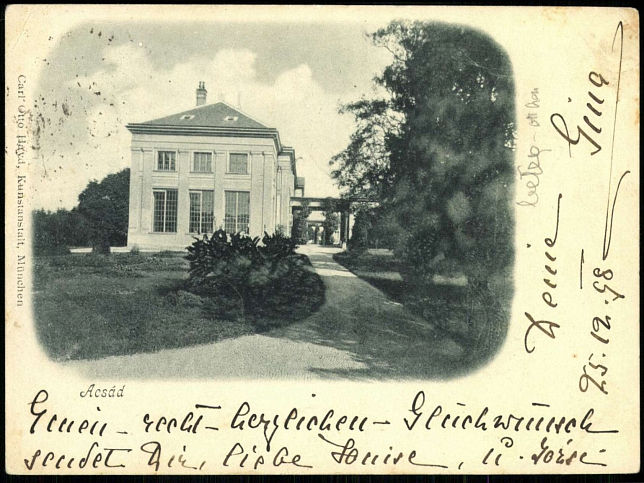 Carl Otto Hayd, Kunstanstalt, München
Acsád
Einen recht herzlichen Glückwunsch
sendet Dir, liebe Louise, u. Grüsse
Deine Gina
25.12.98